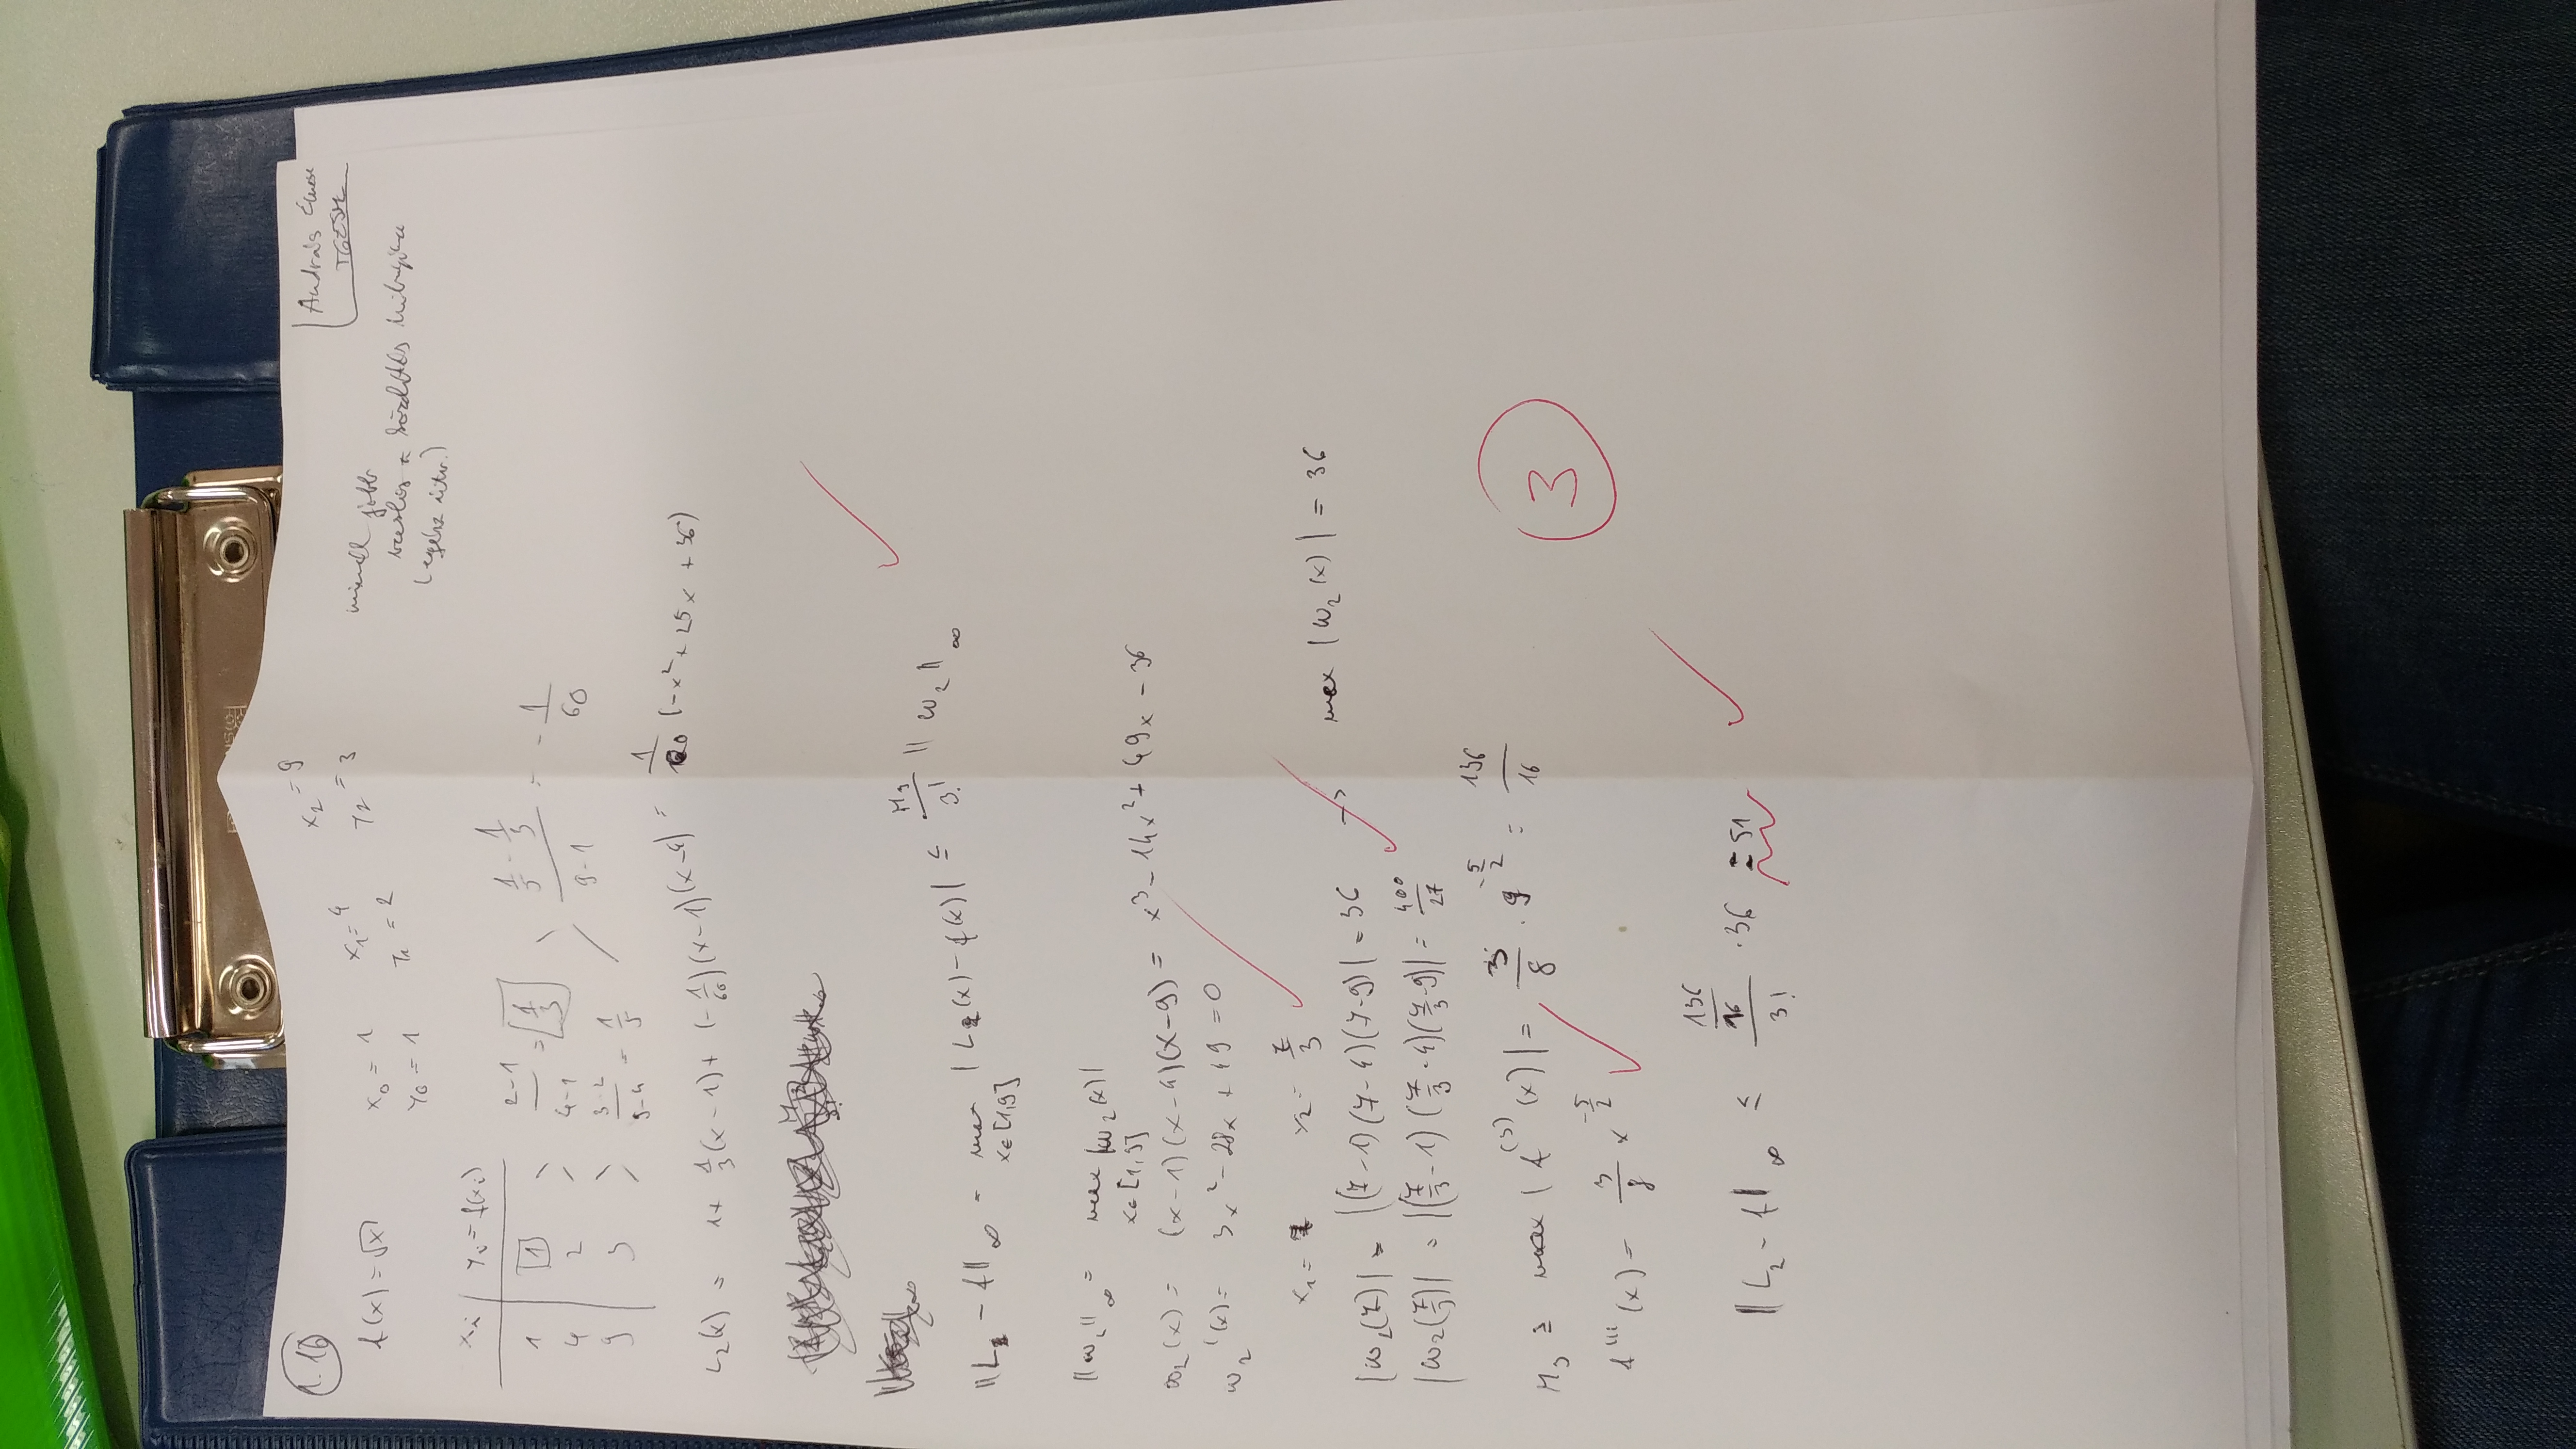 1. 16
András Emese
f(x) = √x
x₀ = 1 x₁ = 4 x₂ = 9
y₀ = 1 y₁ = 2 y₂ = 3
minél jobb
(egész
xᵢ | yᵢ = f(xᵢ)
1 | 1 (2-1)/(4-1) = 1/3 (1/5 - 1/3)/(9-1) = -1/60
4 | 2
9 | 3 (3-2)/(9-4) = 1/5
L₂(x) = 1 + 1/3(x-1) + (-1/60)(x-1)(x-4) = 1/60 (-x² + 25x + 36)
||L₂ - f||∞ = max x∈[1,9] |L₂(x) - f(x)| ≤ M₃/3! ||ω₂||∞
||ω₂||∞ = max x∈[1,9] |ω₂(x)|
ω₂(x) = (x-1)(x-4)(x-9) = x³ - 14x² + 49x - 36
ω₂'(x) = 3x² - 28x + 49 = 0
x₁ = 7 x₂ = 7/3
|ω₂(7)| = |(7-1)(7-4)(7-9)| = 36 → max |ω₂(x)| = 36
|ω₂(7/3)| = |(7/3-1)(7/3-4)(7/3-9)| = 400/27
M₃ ≥ max |f⁽³⁾(x)| = 3/8 · 9^(-5/2) = 136/16
f'''(x) = 3/8 x^(-5/2)
3
||L₂ - f||∞ ≤ (136/16)/3! · 36 = 51